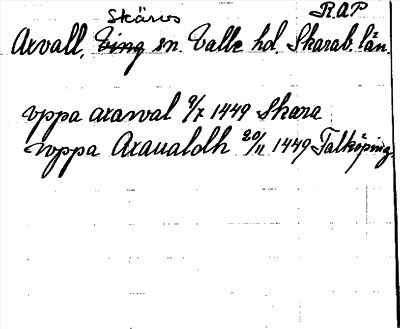 Skärvs R.A.P
Axvall, Eing sn. Valle hd. Skarab. län.
vppa axawal 9/7 1449 Skara
vppa Axaualdh 20/11 1449 Falköping.